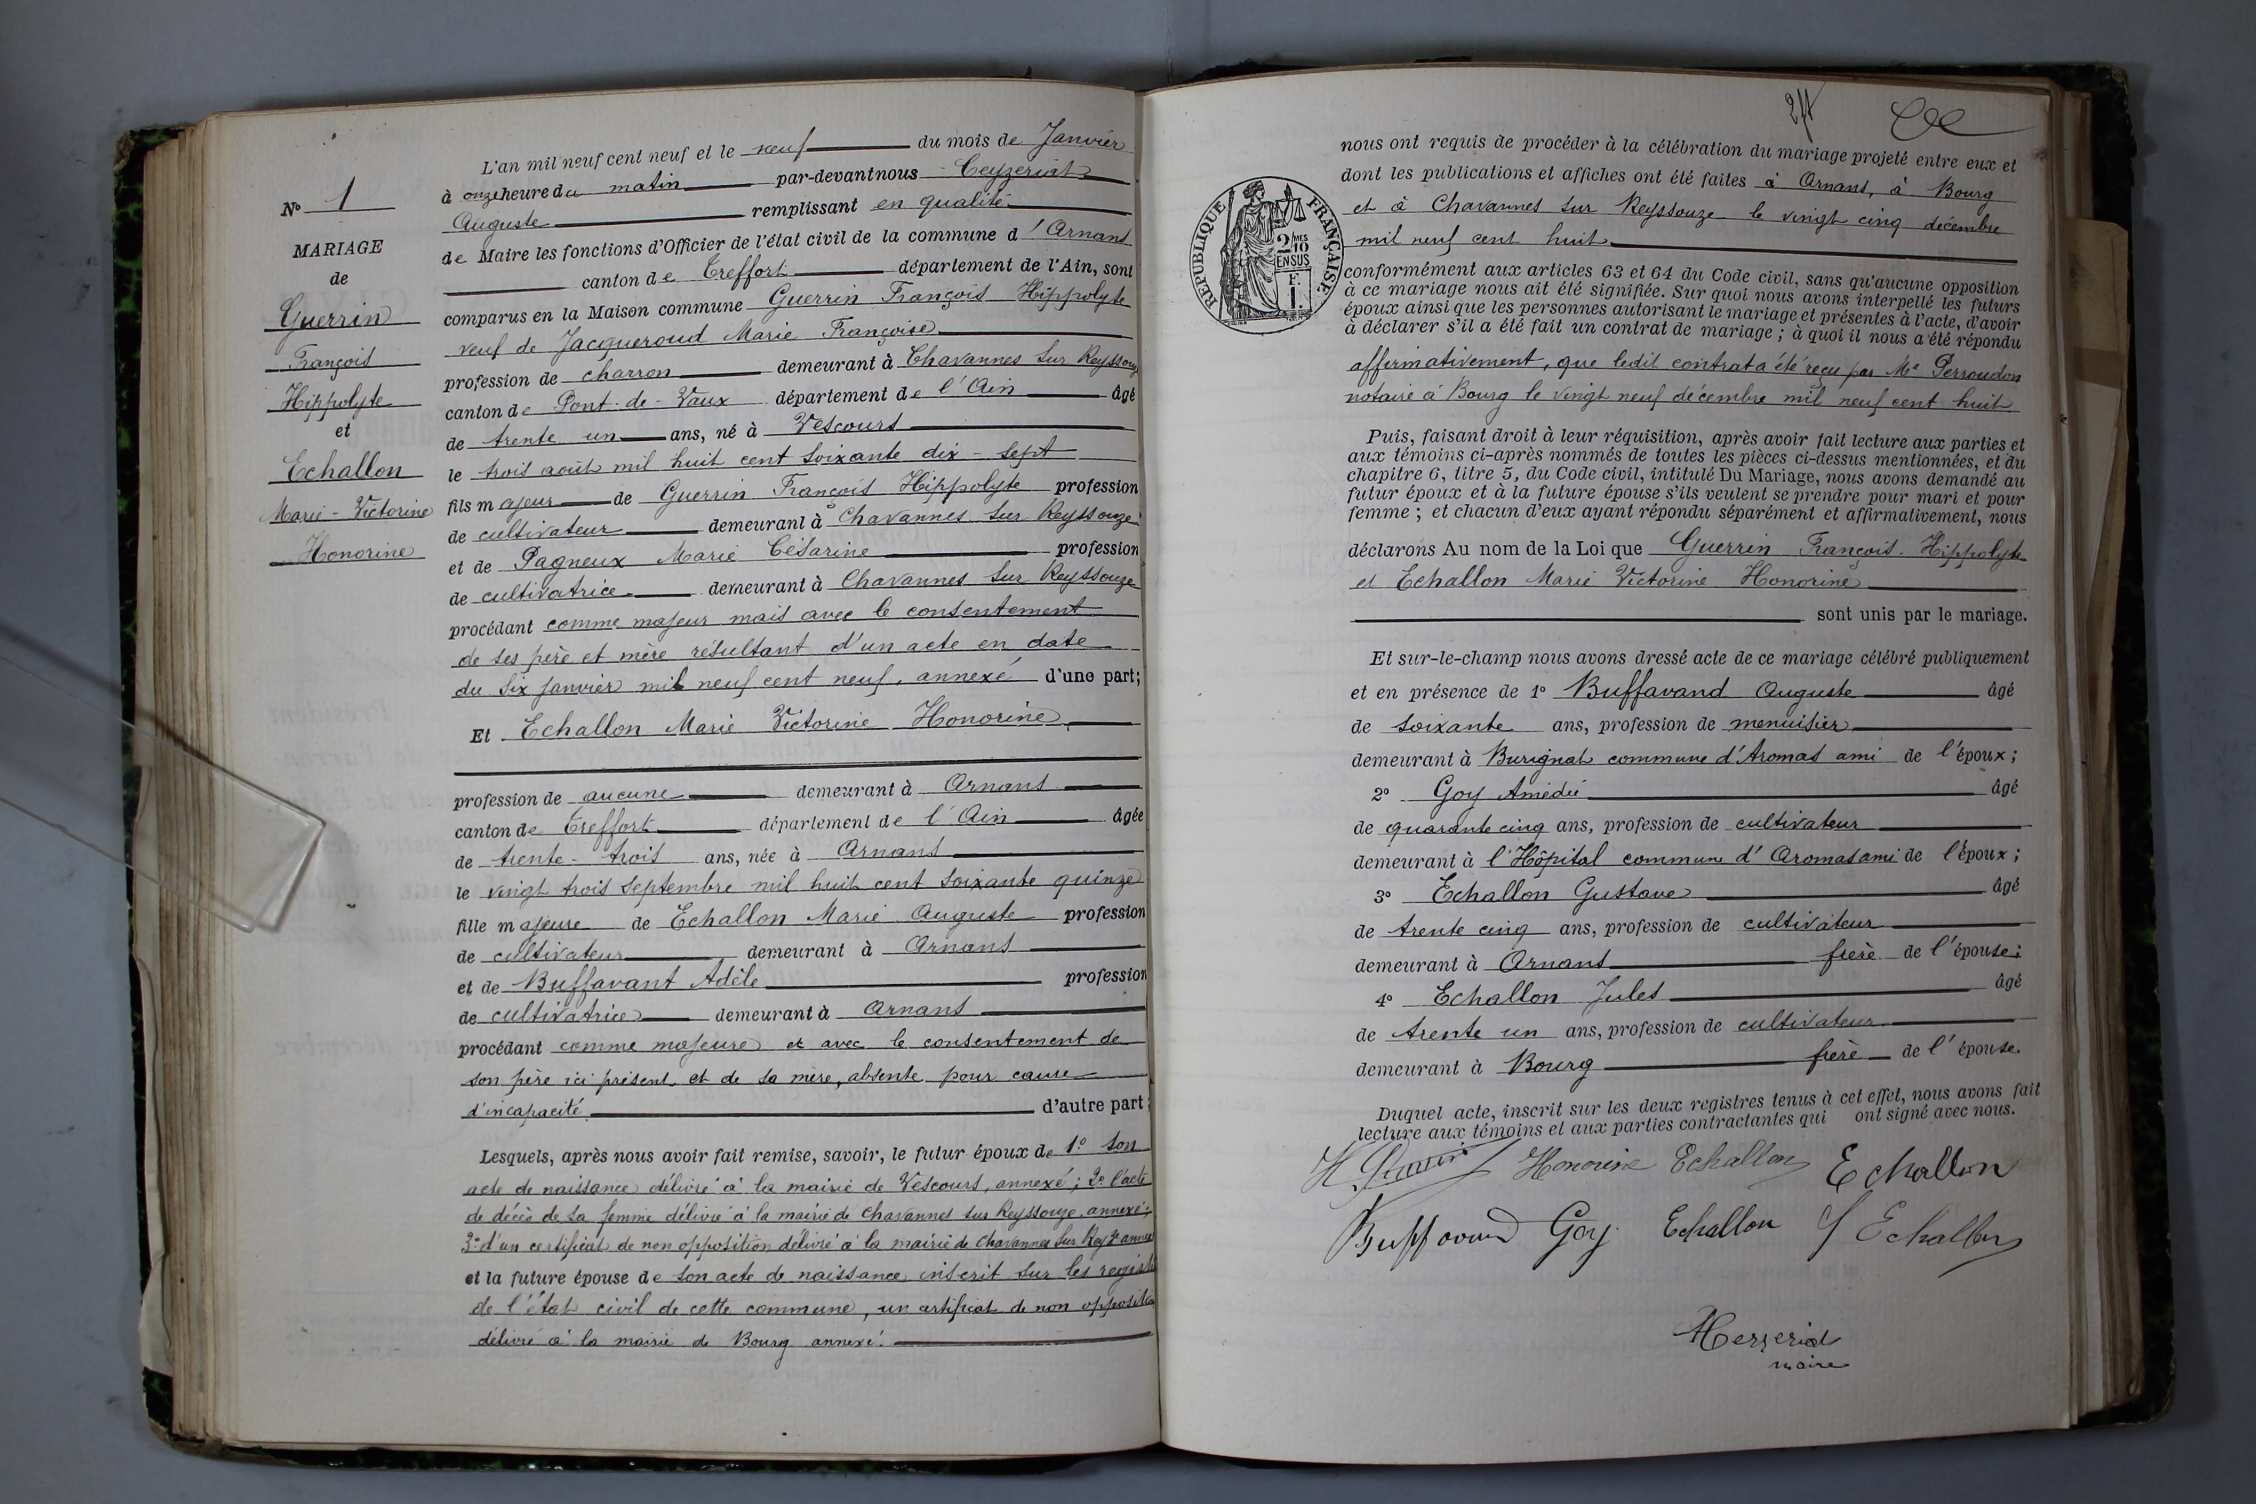 N° 1
MARIAGE
de
Guerrin
François
Hippolyte
et
Echallon
Marie-Victorine
Honorine
L'an mil neuf cent neuf et le neuf du mois de Janvier
à onze heure du matin par-devant nous Ceyzeriat
Auguste remplissant en qualité
de Maire les fonctions d'Officier de l'état civil de la commune d'Arnans
canton de Treffort département de l'Ain, sont
comparus en la Maison commune Guerrin François Hippolyte
veuf de Jacqueroud Marie Françoise
profession de charron demeurant à Chavannes sur Reyssouze
canton de Pont-de-Vaux département de l'Ain âgé
de trente un ans, né à Vescours
le trois août mil huit cent soixante dix-sept
fils majeur de Guerrin François Hippolyte profession
de cultivateur demeurant à Chavannes sur Reyssouze
et de Pagneux Marie Césarine profession
de cultivatrice demeurant à Chavannes sur Reyssouze
procédant comme majeur mais avec le consentement
de ses père et mère résultant d'un acte en date
du six janvier mil neuf cent neuf, annexé d'une part;
Et Echallon Marie Victorine Honorine
profession de aucune demeurant à Arnans
canton de Treffort département de l'Ain âgée
de trente-trois ans, née à Arnans
le vingt trois septembre mil huit cent soixante quinze
fille majeure de Echallon Marie Auguste profession
de cultivateur demeurant à Arnans
et de Buffavant Adèle profession
de cultivatrice demeurant à Arnans
procédant comme majeure et avec le consentement de
son père ici présent et de sa mère, absente pour cause
d'incapacité d'autre part;
Lesquels, après nous avoir fait remise, savoir, le futur époux de 1° son
acte de naissance délivré à la mairie de Vescours, annexé; 2° l'acte
de décès de sa femme délivré à la mairie de Chavannes sur Reyssouze, annexé;
3° d'un certificat de non opposition délivré à la mairie de Chavannes sur Reyze annexé
et la future épouse de son acte de naissance inscrit sur les registres
de l'état civil de cette commune, un certificat de non opposition
délivré à la mairie de Bourg annexé.
RÉPUBLIQUE FRANÇAISE
2/10 MES
EN SUS
F.
1.
nous ont requis de procéder à la célébration du mariage projeté entre eux et
dont les publications et affiches ont été faites à Arnans, à Bourg
et à Chavannes sur Reyssouze le vingt cinq décembre
mil neuf cent huit
conformément aux articles 63 et 64 du Code civil, sans qu'aucune opposition
à ce mariage nous ait été signifiée. Sur quoi nous avons interpellé les futurs
époux ainsi que les personnes autorisant le mariage et présentes à l'acte, d'avoir
à déclarer s'il a été fait un contrat de mariage; à quoi il nous a été répondu
affermativement, que ledit contrat a été reçu par Me Perroudon
notaire à Bourg le vingt neuf décembre mil neuf cent huit
Puis, faisant droit à leur réquisition, après avoir fait lecture aux parties et
aux témoins ci-après nommés de toutes les pièces ci-dessus mentionnées, et du
chapitre 6, titre 5, du Code civil, intitulé Du Mariage, nous avons demandé au
futur époux et à la future épouse s'ils veulent se prendre pour mari et pour
femme; et chacun d'eux ayant répondu séparément et affirmativement, nous
déclarons Au nom de la Loi que Guerrin François-Hippolyte
et Echallon Marie Victorine Honorine
sont unis par le mariage.
Et sur-le-champ nous avons dressé acte de ce mariage célébré publiquement
et en présence de 1° Buffavand Auguste âgé
de soixante ans, profession de menuisier
demeurant à Burignat commune d'Aromas ami de l'époux;
2° Goy Amédée âgé
de quarante cinq ans, profession de cultivateur
demeurant à l'Hôpital commune d'Aromas ami de l'époux;
3° Echallon Gustave âgé
de trente cinq ans, profession de cultivateur
demeurant à Arnans frère de l'épouse;
4° Echallon Jules âgé
de trente un ans, profession de cultivateur
demeurant à Bourg frère de l'épouse.
Duquel acte, inscrit sur les deux registres tenus à cet effet, nous avons fait
lecture aux témoins et aux parties contractantes qui ont signé avec nous.
Honorine Echallon Echallon
Buffavand Goy Echallon J Echallon
maire